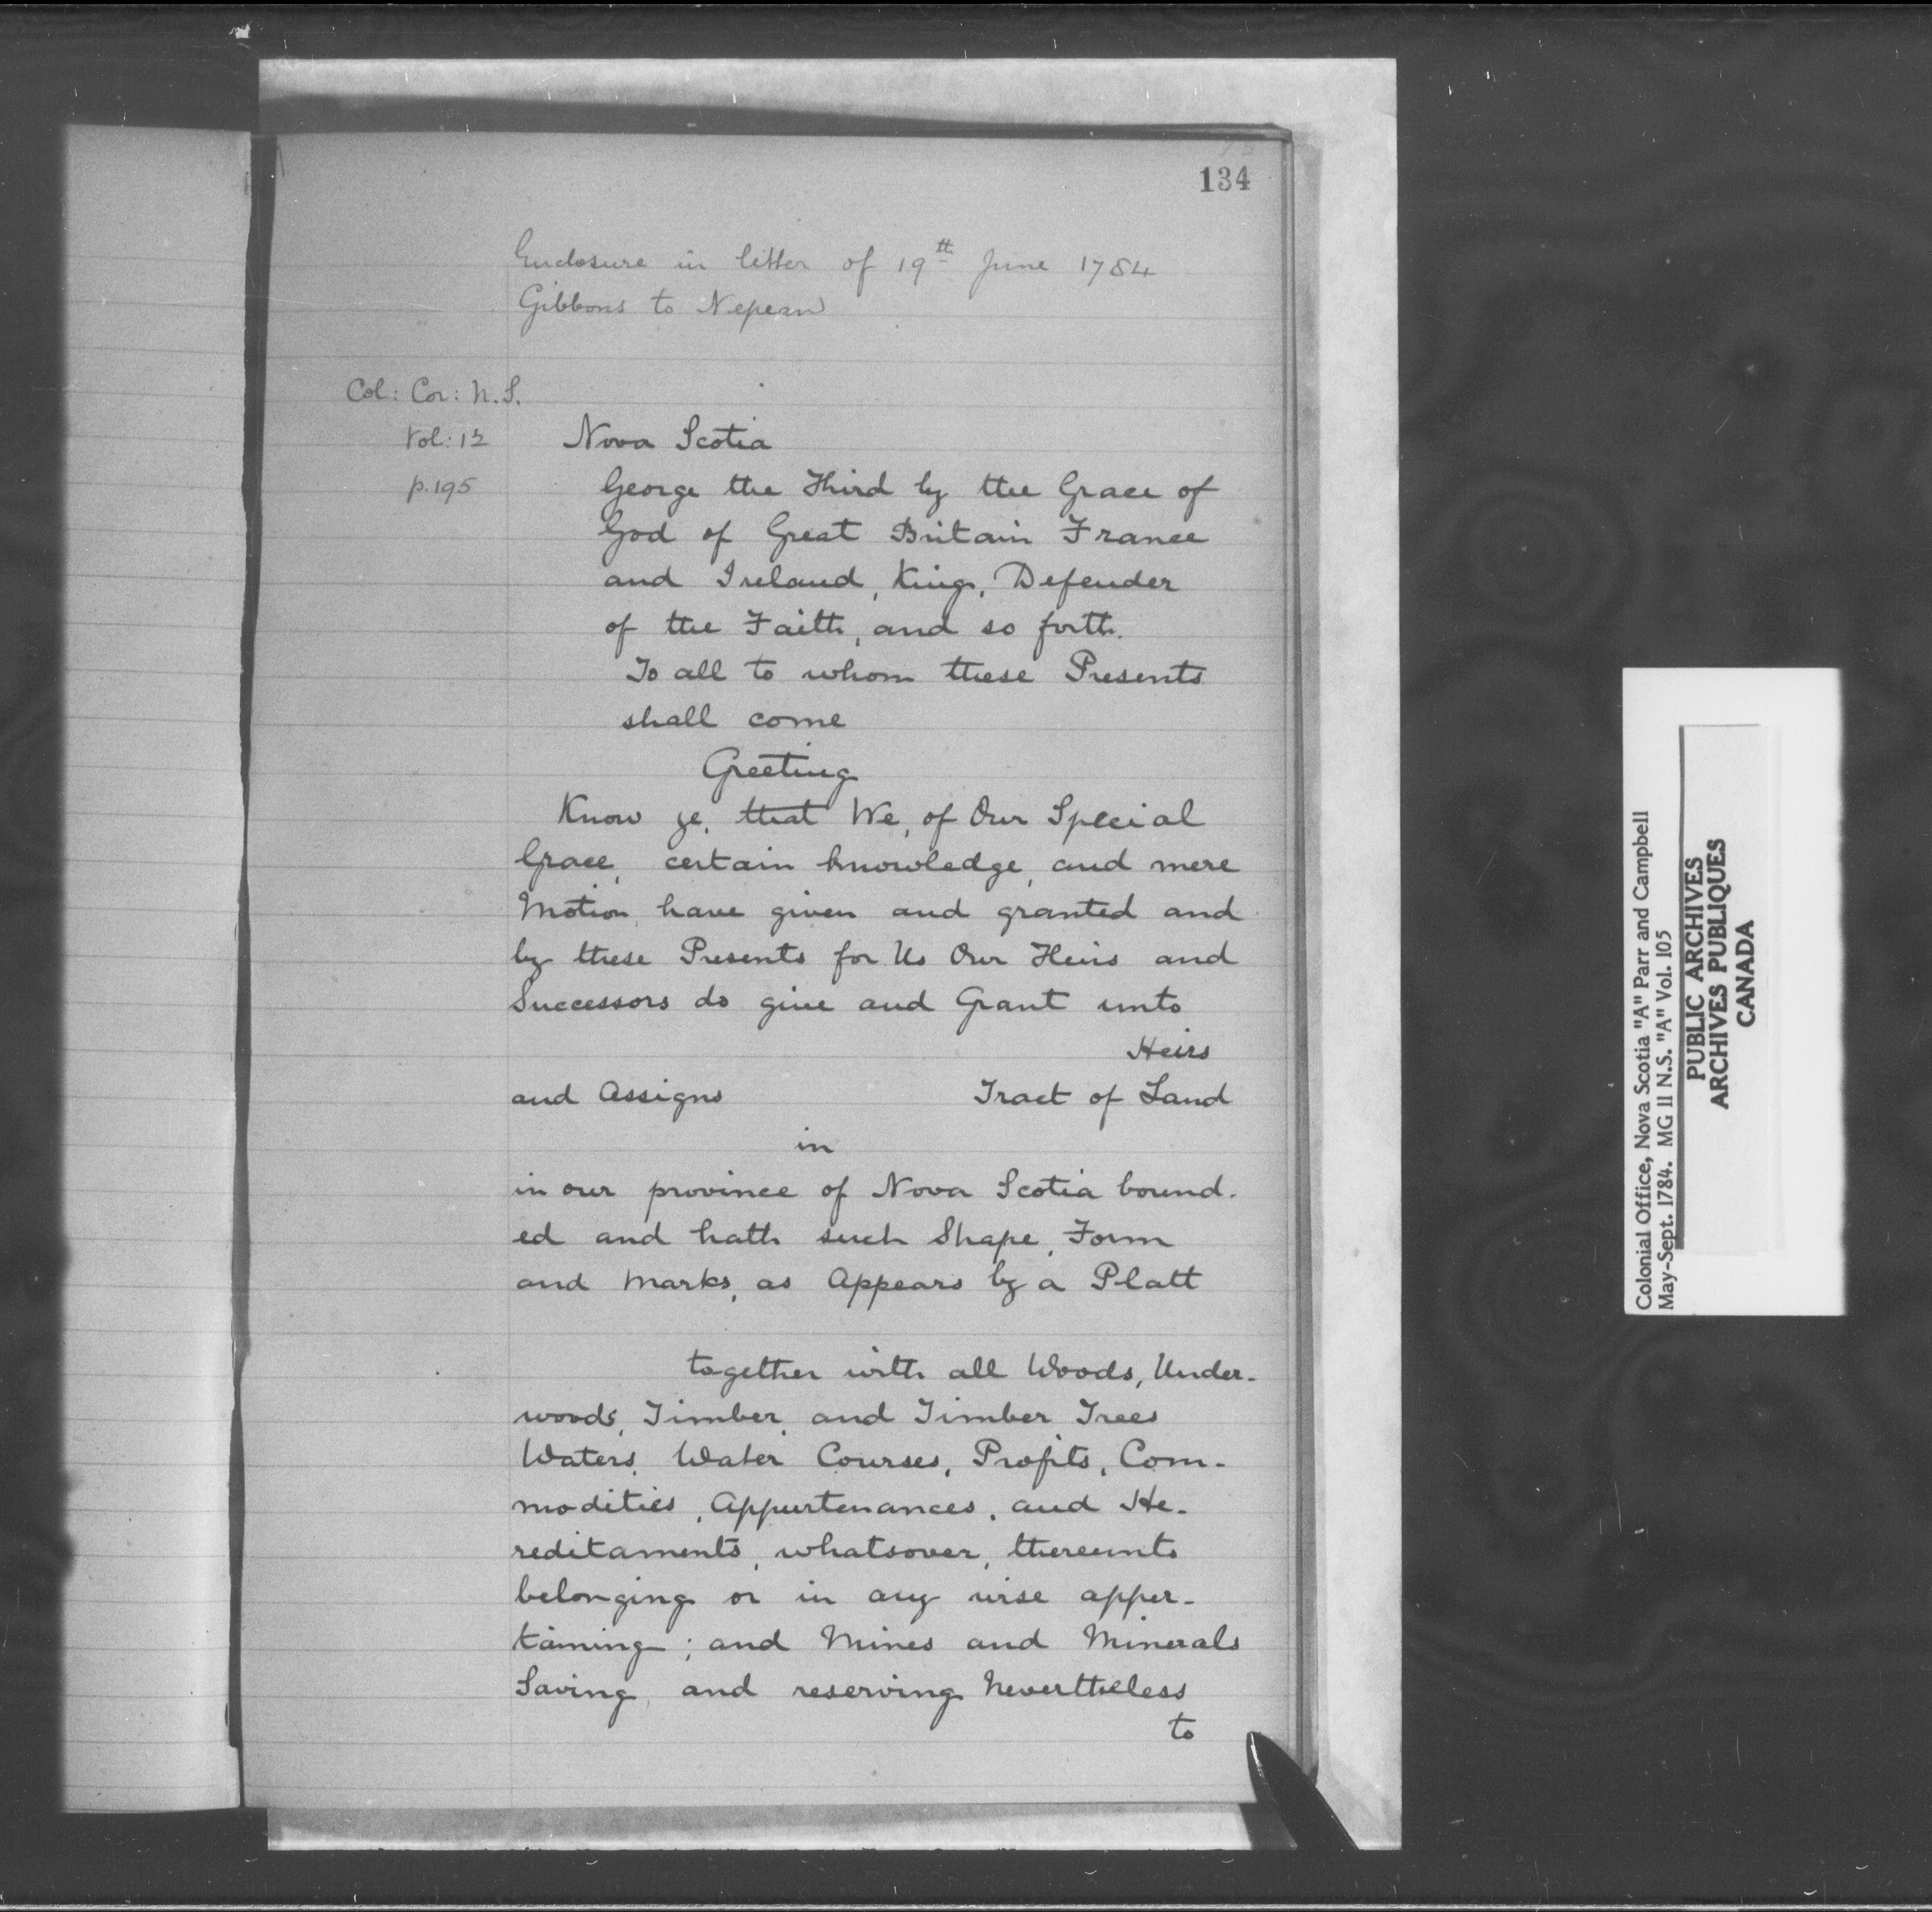 134
Enclosure in letter of 19th June 1784
Gibbons to Nepean
Col: Cor: N.S.
Vol: 12
p. 195
Nova Scotia
George the Third by the Grace of
God of Great Britain France
and Ireland, King, Defender
of the Faith, and so forth.
To all to whom these Presents
shall come
Greeting
Know ye, that We, of Our Special
Grace, certain knowledge, and mere
Motion, have given and granted and
by these Presents for Us Our Heirs and
Successors do give and Grant unto
Heirs
and Assigns Tract of Land
in
in our province of Nova Scotia bound-
ed and hath such Shape, Form
and Marks, as Appears by a Platt
together with all Woods, Under-
woods, Timber, and Timber Trees
Waters, Water Courses, Profits, Com-
modities, Appurtenances, and He-
reditaments, whatsover, thereunto
belonging or in any wise apper-
taining; and Mines and Minerals
Saving, and reserving Nevertheless
to
Colonial Office, Nova Scotia "A" Parr and Campbell
May-Sept. 1784. MG 11 N.S. "A" Vol. 105
PUBLIC ARCHIVES
ARCHIVES PUBLIQUES
CANADA